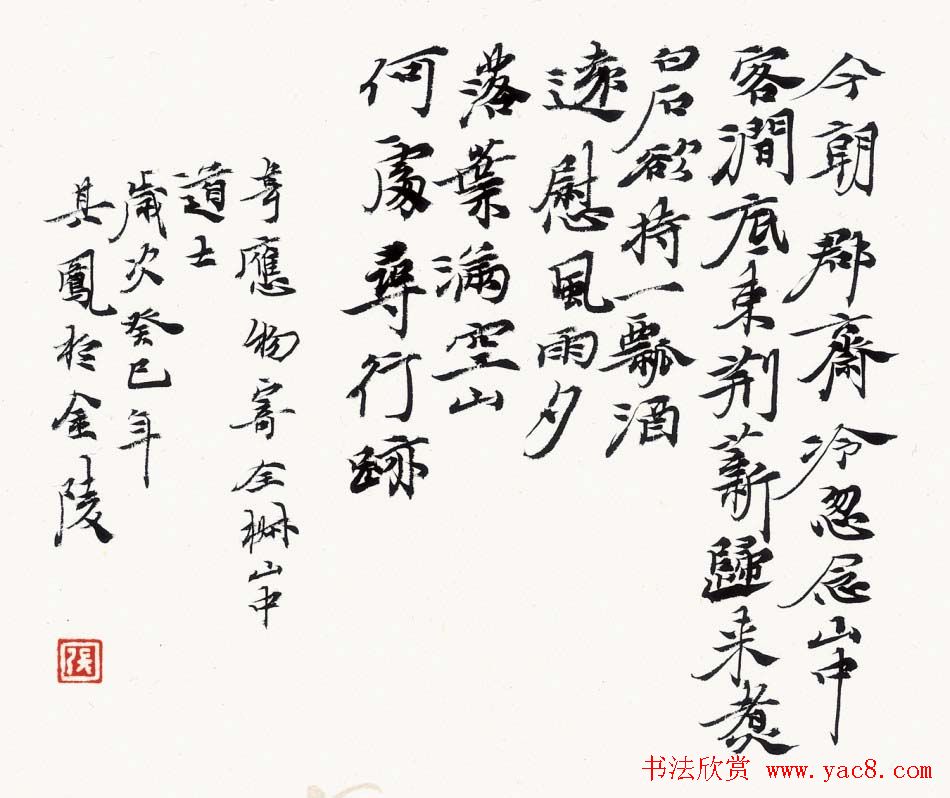 今朝郡齋冷忽念山中
客澗底束荆薪歸来煮
白石欲持一瓢酒
遠慰風雨夕
落葉滿空山
何處尋行跡
韋應物寄全椒山中
道士
歲次癸巳年
其鳳於金陵
張
书法欣赏 www.yac8.com